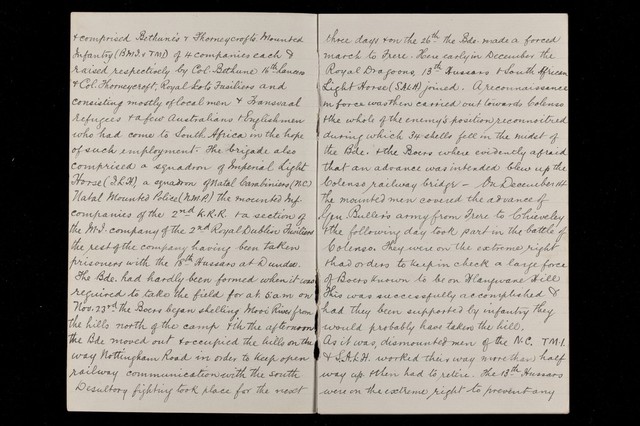 & comprised Bethune's & Thorneycrofts Mounted
Infantry (B.M.I. & T.M.I) of 4 companies each &
raised respectively by Col. Bethune 16th Lancers
& Col. Thorneycroft, Royal Scots Fusiliers and
consisting mostly of local men & Transvaal
refugees & a few Australians & Englishmen
who had come to South Africa on the hope
of such employment. The brigade also
comprised a squadron of Imperial Light
Horse (I.L.H), a squadron of Natal Carabiniers (N.C.)
Natal Mounted Police (N.M.P.) the mounted Inf
companies of the 2nd K.R.R. & a section of
the M.I. company of the 2nd Royal Dublin Fusiliers
the rest of the company having been taken
prisoners with the 18th Hussars at Dundee.
The Bde. had hardly been formed when it was
required to take the field for at 5 am on
Nov. 23rd the Boers began shelling Mooi River from
the hills north of the camp & the afternoon
the Bde moved out & occupied the hills on the
way Nottingham Road in order to keep open
railway communication with the south
Desultory fighting took place for the next
three days & on the 26th the Bde made a forced
march to Frere. Here early in December the
Royal Dragoons, 13th Hussars & South African
Light Horse (S.A.L.H) joined. A reconnaissance
in force was then carried out towards Colenso
& the whole of the enemy's position reconnoitred
during which 34 shells fell in the midst of
the Bde. & the Boers where evidently afraid
that an advance was intended blew up the
Colenso railway bridge - On December 14
the mounted men covered the advance of
Gen Buller's army from Frere to Chieveley
& the following day took part in the battle of
Colenso. They were on the extreme right
& had orders to keep in check a large force
of Boers known to be on Hlangwane Hill
This was successfully accomplished &
had they been supported by infantry they
would probably have taken the hill.
As it was, dismounted men of the N.C, T.M.I.
& S.A.L.H. worked their way more than half
way up & then had to retire. The 13th Hussars
were on the extreme right to prevent any